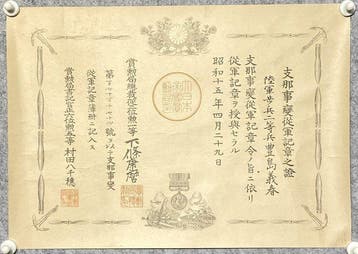 支那事變從軍記章之證
陸軍歩兵二等兵豊島義春
支那事變從軍記章令ノ旨ニ依リ
從軍記章ヲ授與セラル
昭和十五年四月二十九日
大日本帝國
賞勲局總裁從三位勲一等下條康麿
號ヲ以テ支那事變
從軍記章簿册ニ記入ス
賞勲局書記官正六位勲五等村田八千穂